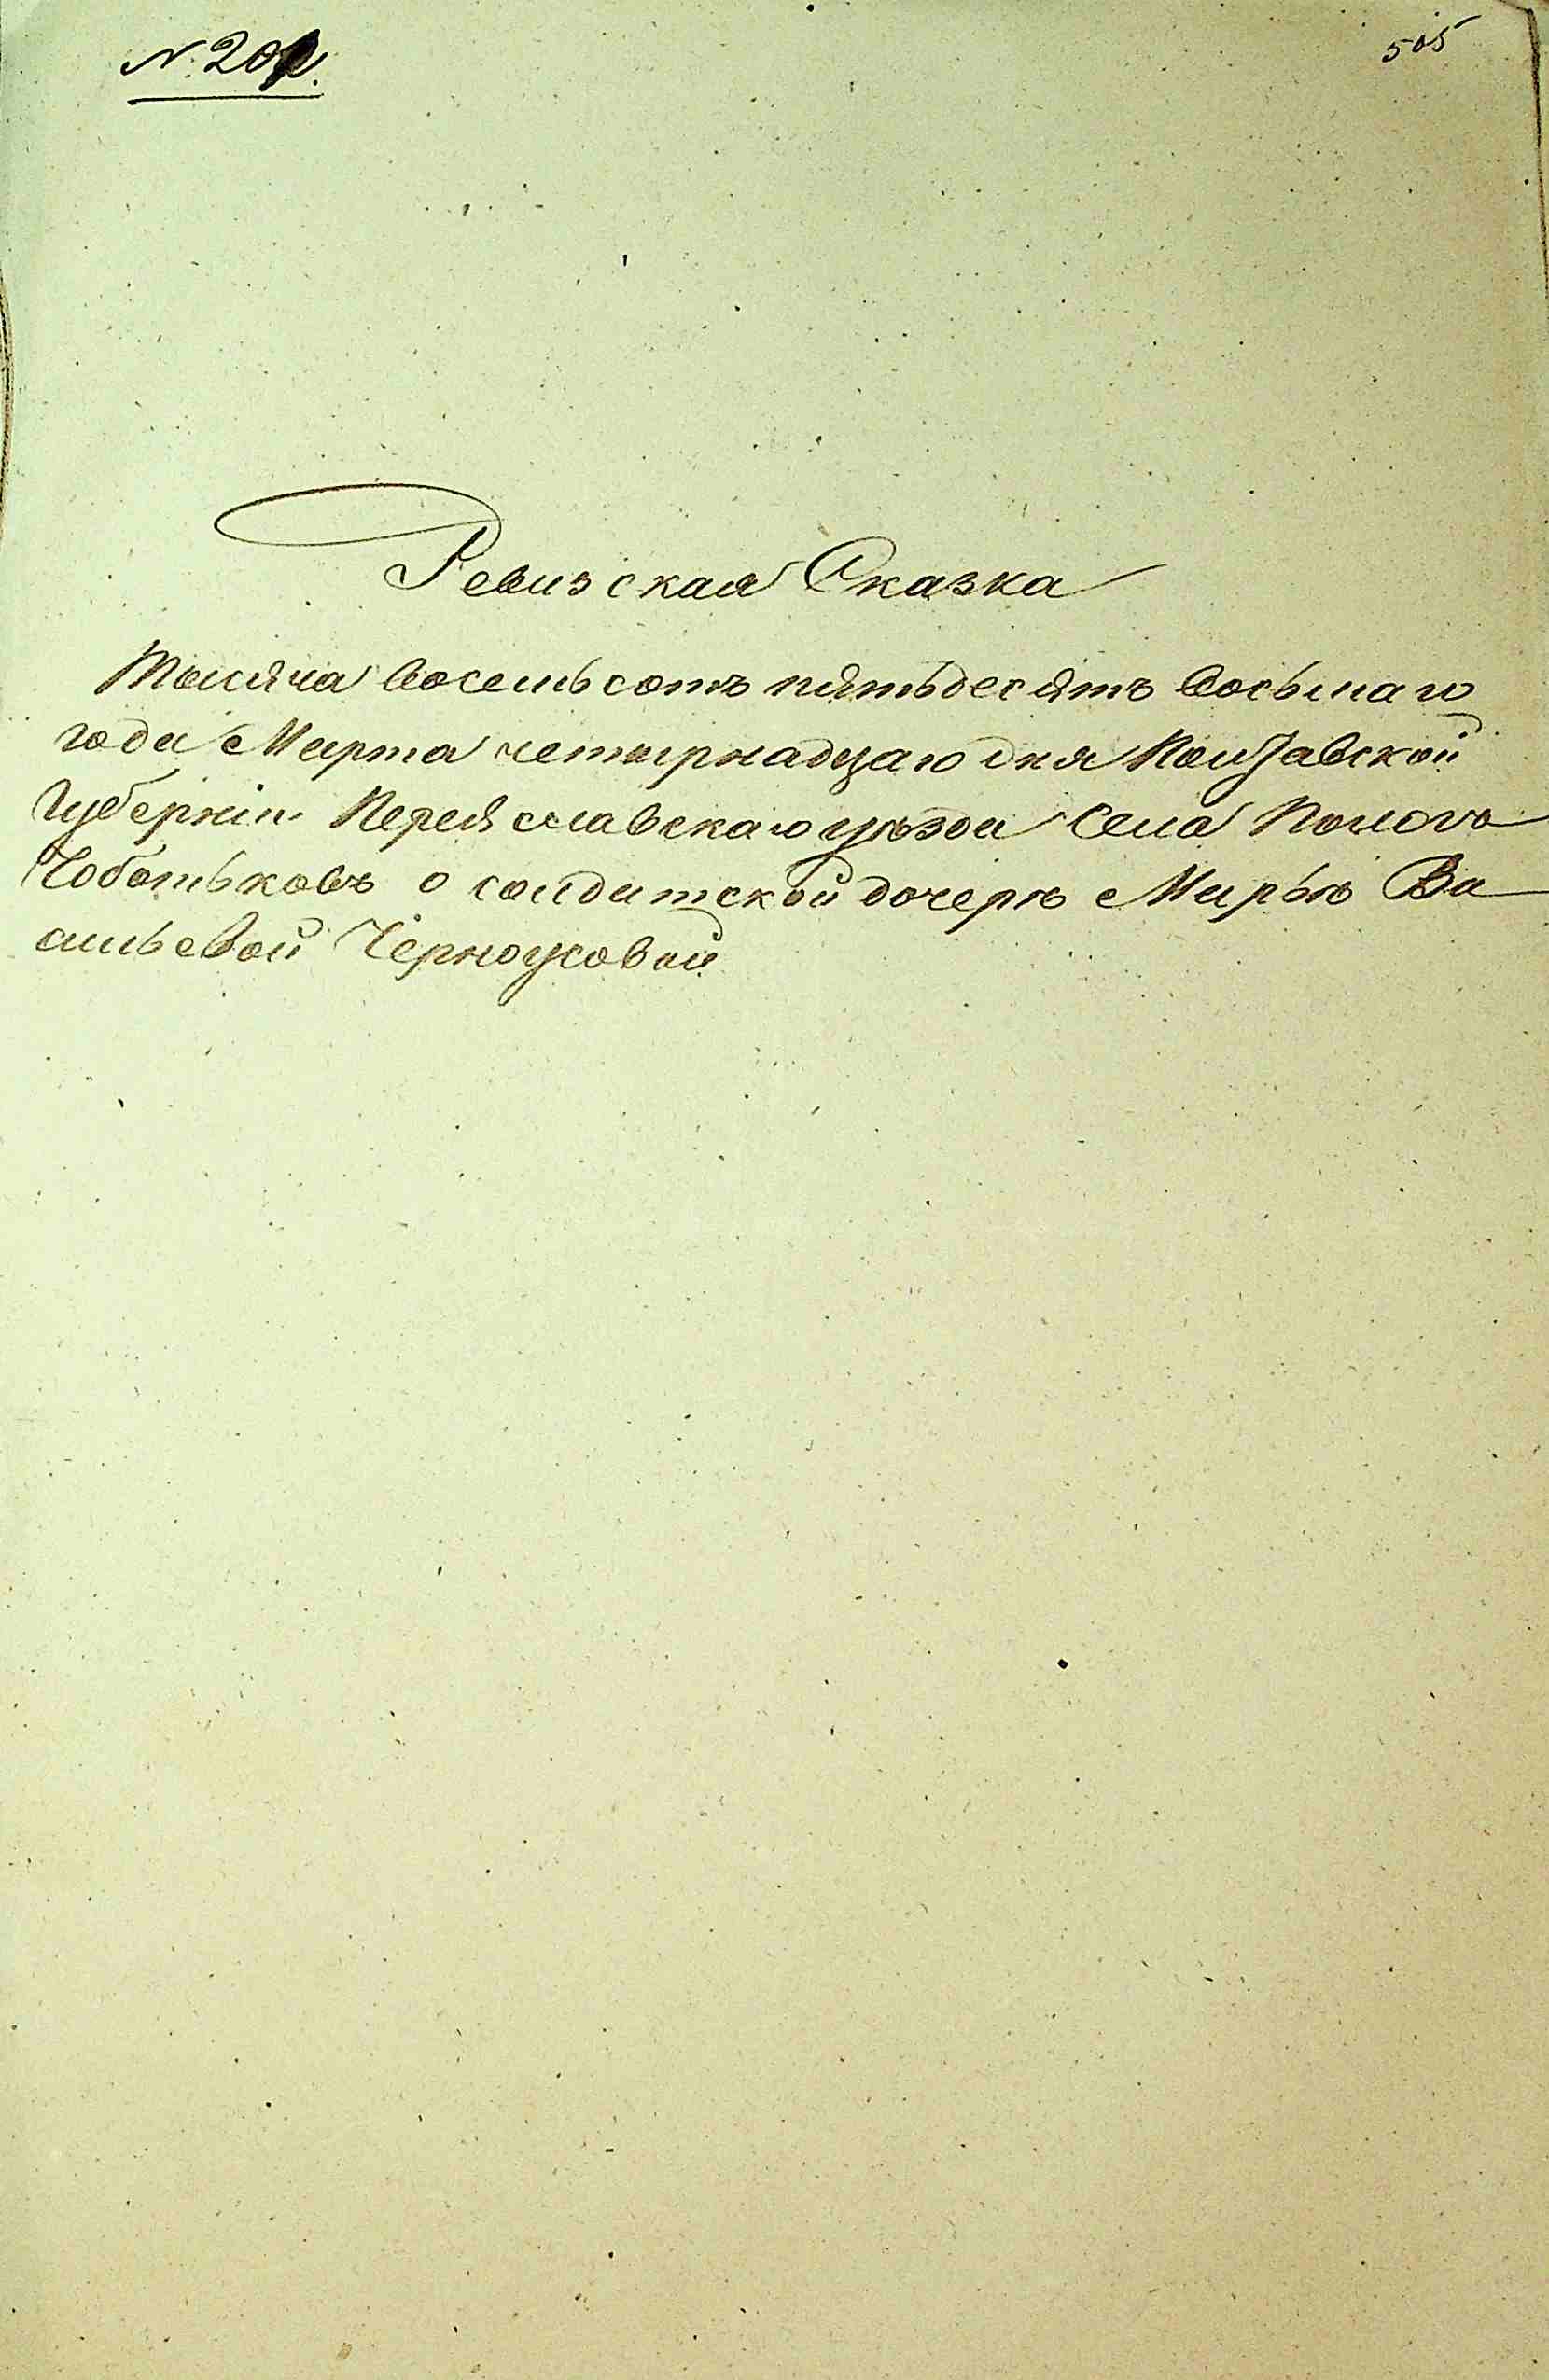 505
Ревизская Сказка
Тысяча восемьсотъ пятьдесятъ восьмаго
года Марта четырнадцаго дня Полтавской
Губерніи Переяславскаго уѣзда Села Полого
Чоботьковъ о солдатской дочерѣ Марьѣ Ва
сильевой Черноусовой